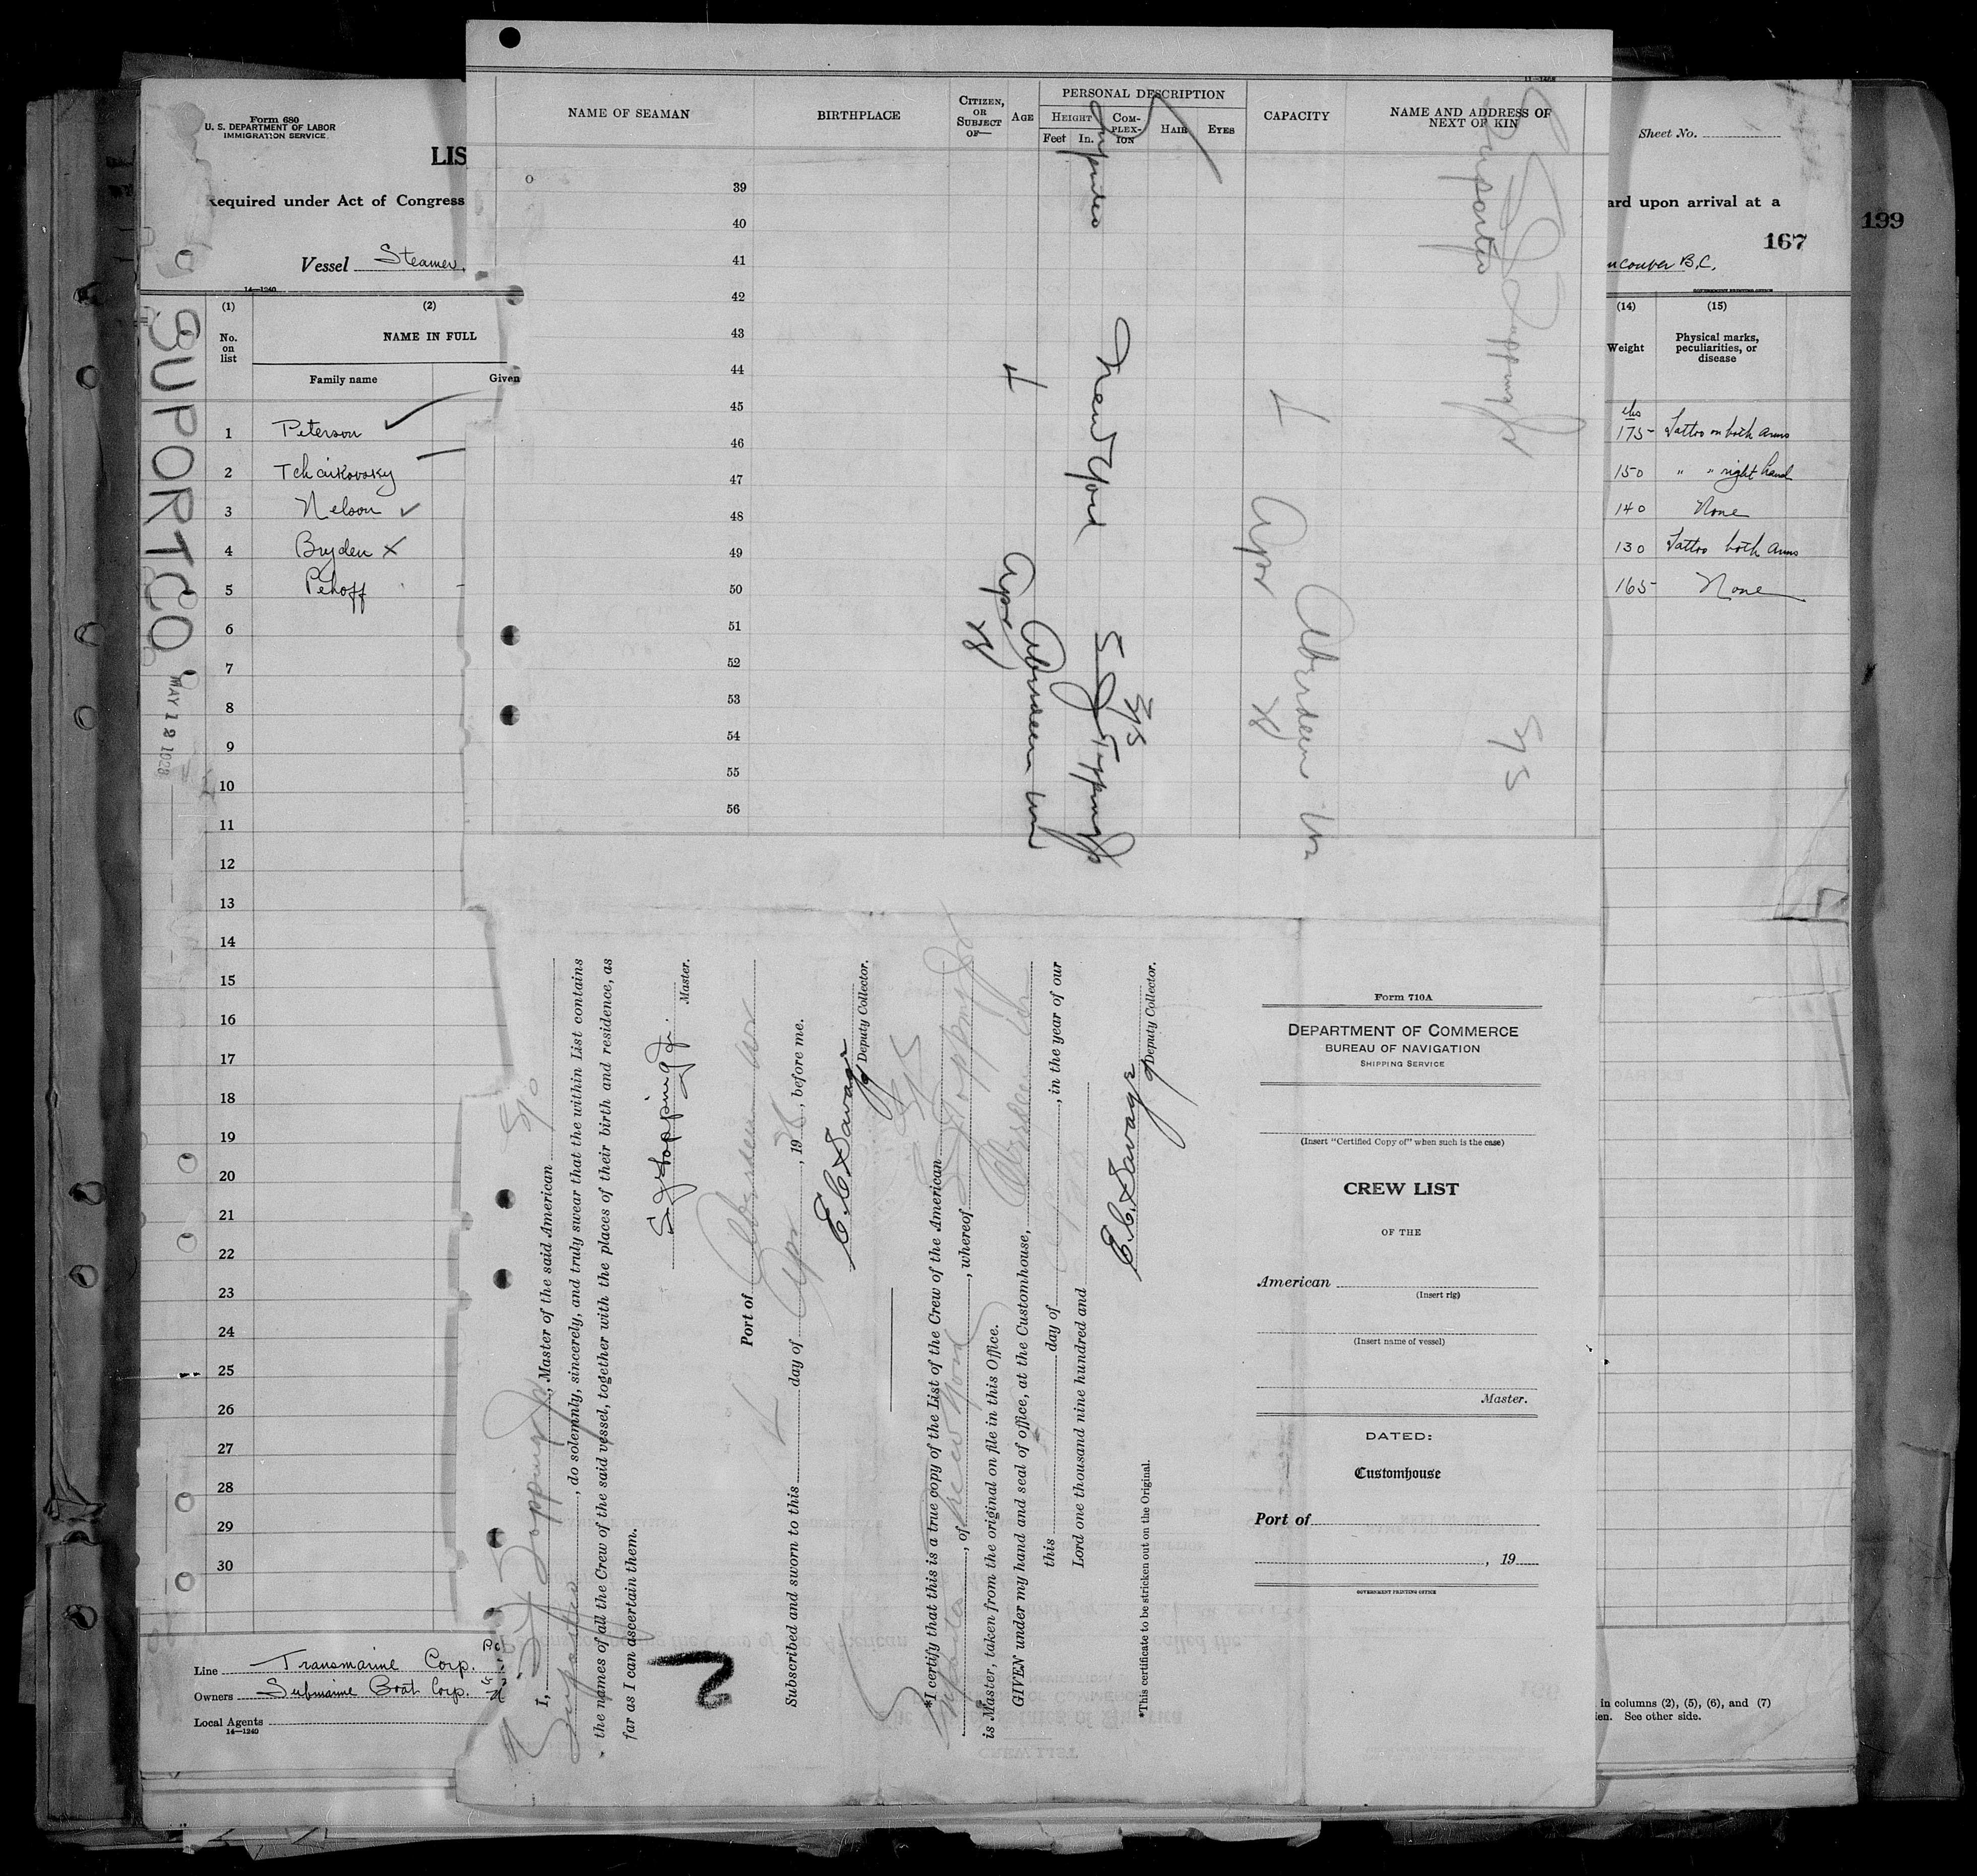 Form 680
U. S. DEPARTMENT OF LABOR
IMMIGRATION SERVICE
LIS
Required under Act of Congress
Vessel Steamer.
14—1240
(1) (2)
No. on list
NAME IN FULL
Family name Given
1 Peterson
2 Tchaikovsky
3 Nelson
4 Bryden X
5 Pehoff
6
7
8
9
10
11
12
13
14
15
16
17
18
19
20
21
22
23
24
25
26
27
28
29
30
Line Transmarine Corp.
Owners Submarine Boat Corp.
Local Agents
14—1240
SUPORTCO
MAY 12 1928
NAME OF SEAMAN
BIRTHPLACE
CITIZEN, OR SUBJECT OF—
AGE
PERSONAL DESCRIPTION
HEIGHT
Feet In.
COM-PLEX-ION
HAIR
EYES
CAPACITY
NAME AND ADDRESS OF NEXT OF KIN
39
40
41
42
43
44
45
46
47
48
49
50
51
52
53
54
55
56
New York
S J Topping Jr
4
Apr
Aberdeen Wn
4
Apr
Aberdeen Wn
I, S J Topping Jr, Master of the said American
, do solemnly, sincerely, and truly swear that the within List contains
the names of all the Crew of the said vessel, together with the places of their birth and residence, as
far as I can ascertain them.
S J Topping Jr. Master.
Port of Aberdeen
Subscribed and sworn to this 4 day of Apr, 19 , before me.
E. C. Savage
Deputy Collector.
*I certify that this is a true copy of the List of the Crew of the American
, of New York, whereof S J Topping Jr
is Master, taken from the original on file in this Office.
GIVEN under my hand and seal of office, at the Customhouse, Aberdeen
this day of , in the year of our
Lord one thousand nine hundred and
E. C. Savage
Deputy Collector.
*This certificate to be stricken out on the Original.
2
Form 710A
DEPARTMENT OF COMMERCE
BUREAU OF NAVIGATION
SHIPPING SERVICE
(Insert "Certified Copy of" when such is the case)
CREW LIST
OF THE
American
(Insert rig)
(Insert name of vessel)
Master.
DATED:
Customhouse
Port of
, 19
GOVERNMENT PRINTING OFFICE
Sheet No.
ard upon arrival at a
167
199
ncouver B.C.
GOVERNMENT PRINTING OFFICE
(14) (15)
Weight
Physical marks, peculiarities, or disease
175 Tattoo on both arms
150 " " right hand
140 None
130 Tattoo both arms
165 None
in columns (2), (5), (6), and (7)
en. See other side.